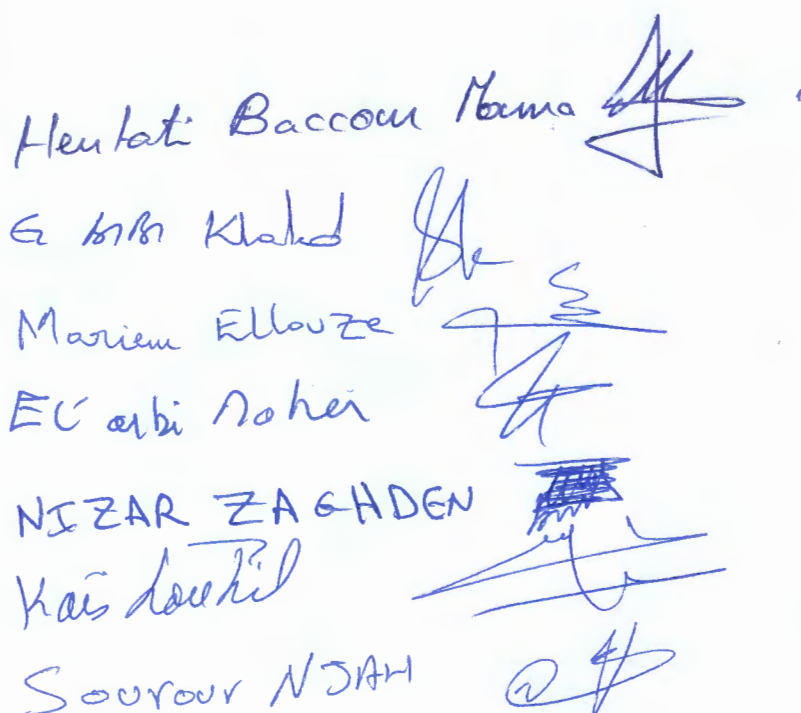 Hentati Baccour
Khaled
Mariem Ellouze
El arbi Maher
NIZAR ZAGHDEN
Kais Loukil
Sourour NJAH